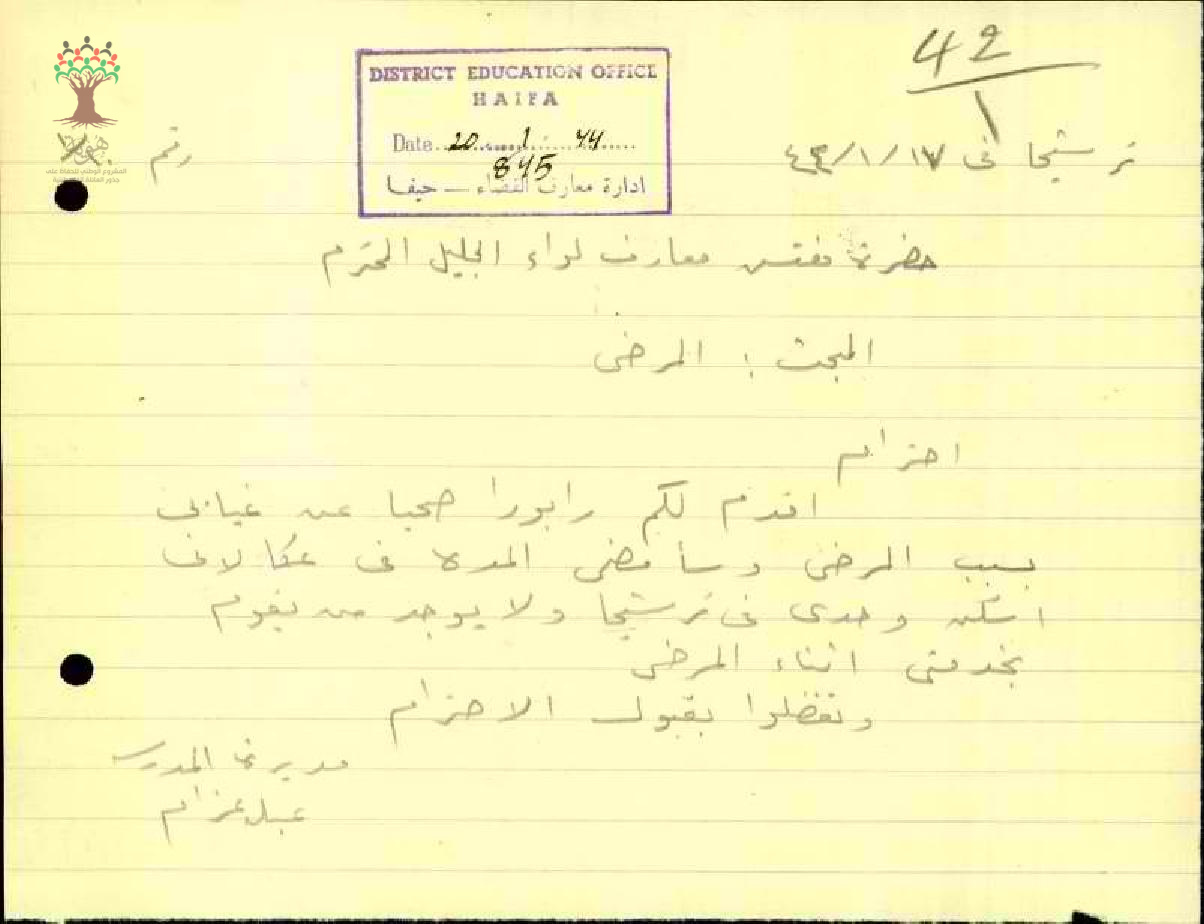 42
1
DISTRICT EDUCATION OFFICE
HAIFA
Date 20 1 44
845
ادارة معارف القضاء — حيفا
ترشيحا في ١٧/١/٤٤
رقم
هوية
المشروع الوطني للحفاظ على
حضرة مفتش معارف لواء الجليل المحترم
المبحث : المرض
احترام
اقدم لكم رابورا صحيا عن غيابي
بسبب المرض وسأمضي المدة في عكا لاني
اسكن وحدي في ترشيحا ولا يوجد من يقوم
بخدمتي اثناء المرض
وتفضلوا بقبول الاحترام
مديرة المدرسة
عزام